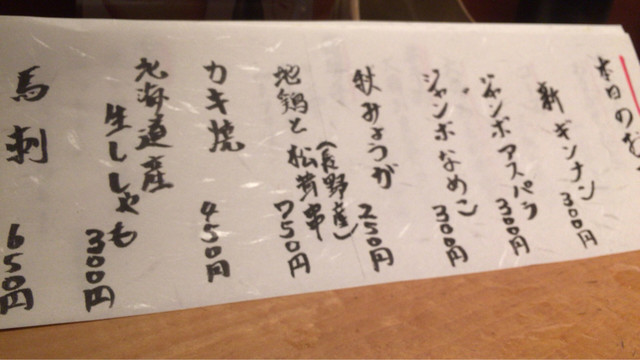 本日の
新ギンナン 300円
ジャンボアスパラ 300円
ジャンボなめこ 300円
秋みょうが 250円
地鶏と松茸串 (長野産) 750円
カキ焼 450円
北海道産
生ししゃも 300円
馬刺 650円